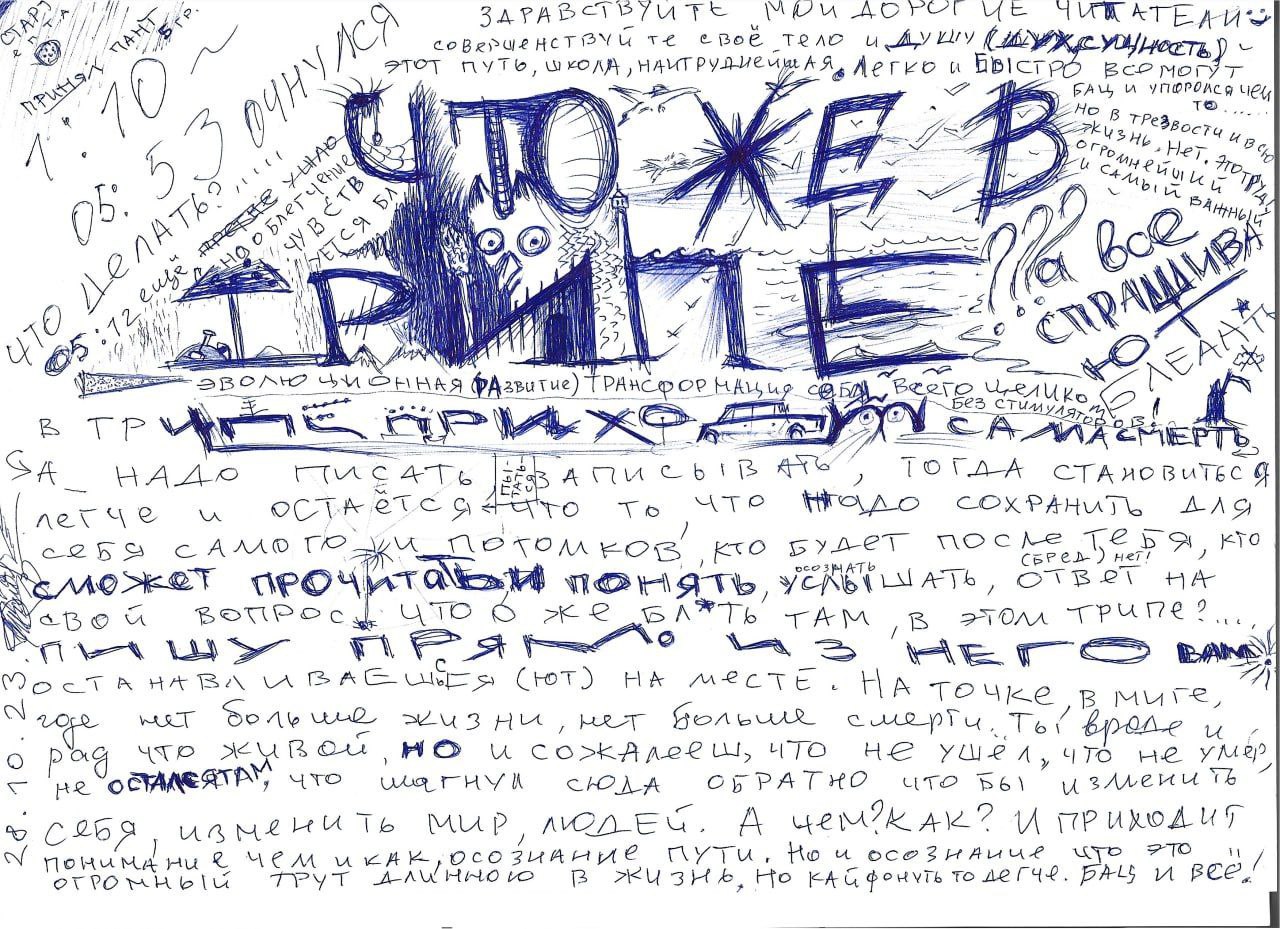 СТАРТ
ПРИНЯЛ
ПАНТ
5 гр.
1:10~
05:53 ОЧНУЛСЯ
ЧТО ДЕЛАТЬ?.....
05:12 ещё
ЗДРАВСТВУЙТЕ МОИ ДОРОГИЕ ЧИТАТЕЛИ
СОВЕРШЕНСТВУЙТЕ СВОЁ ТЕЛО И ДУШУ (ДУХ, СУЩНОСТЬ) ~
ЭТОТ ПУТЬ, ШКОЛА, НАИТРУДНЕЙШАЯ. ЛЕГКО И БЫСТРО ВСЕ МОГУТ
БАЦ И УПОРОЛСЯ ЧЕМ
ТО.....
НО В ТРЕЗВОСТИ И ВСЮ
ЖИЗНЬ, НЕТ. ЭТО ТРУД
ОГРОМНЕЙШИЙ
И САМЫЙ ВАЖНЫЙ
ЧТО ЖЕ В
ТРИПЕ
???
а все
СПРАШИВА
ЮТ
ЭВОЛЮЦИОННАЯ (РАЗВИТИЕ) ТРАНСФОРМАЦИЯ СЕБЯ ВСЕГО ЦЕЛИКОМ
БЕЗ СТИМУЛЯТОРОВ!
В ТРИПЕ ПРИХОДИТ САМА СМЕРТЬ
ДА НАДО ПИСАТЬ, ПЫТАТЬСЯ ЗАПИСЫВАТЬ, ТОГДА СТАНОВИТЬСЯ
ЛЕГЧЕ И ОСТАЁТСЯ ЧТО ТО ЧТО НАДО СОХРАНИТЬ ДЛЯ
СЕБЯ САМОГО И ПОТОМКОВ, КТО БУДЕТ ПОСЛЕ ТЕБЯ, КТО
(БРЕД), НЕТ!
СМОЖЕТ ПРОЧИТАТЬ И ПОНЯТЬ, ОСОЗНАТЬ УСЛЫШАТЬ, ОТВЕТ НА
СВОЙ ВОПРОС. ЧТО ЖЕ БЛ*ТЬ ТАМ, В ЭТОМ ТРИПЕ?....
ПИШУ ПРЯМО ИЗ НЕГО ВАМ
ОСТАНАВЛИВАЕШЬСЯ (ЮТ) НА МЕСТЕ. НА ТОЧКЕ, В МИГЕ,
где нет больше жизни, нет больше смерти.. Ты вроде и
рад что живой, но и сожалееш, что не ушёл, что не умер,
не ОСТАЛСЯ ТАМ, что шагнул сюда обратно что бы изменить
СЕБЯ, ИЗМЕНИТЬ МИР, ЛЮДЕЙ. А ЧЕМ? КАК? И ПРИХОДИТ
ПОНИМАНИЕ ЧЕМ И КАК, ОСОЗНАНИЕ ПУТИ. НО И ОСОЗНАНИЕ ЧТО ЭТО
ОГРОМНЫЙ ТРУТ ДЛИННОЮ В ЖИЗНЬ, НО КАЙФОНУТЬ ТО ЛЕГЧЕ. БАЦ И ВСЁ!
28.10.23